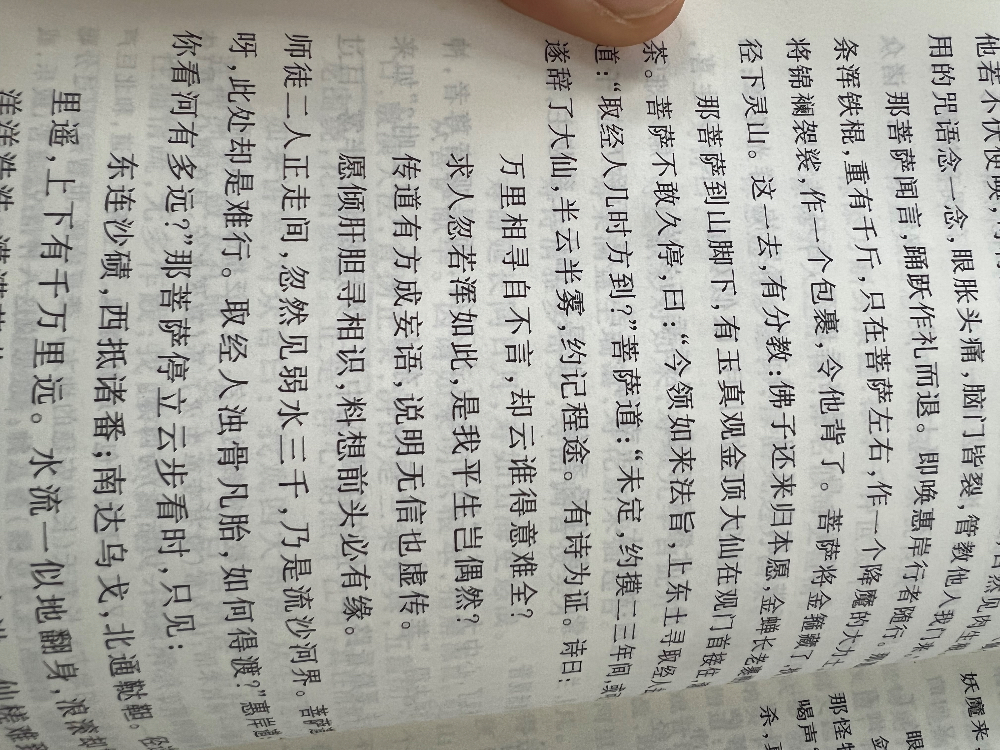 用的咒语念一念,眼胀头痛,脑门皆裂,管教他入我门来
那菩萨闻言,踊跃作礼而退。即唤惠岸行者随行。
条浑铁棍,重有千斤,只在菩萨左右,作一个降魔的大力士
将锦襕袈裟,作一个包裹,令他背了。菩萨将金箍藏了
径下灵山。这一去,有分教:佛子还来归本愿,金蝉长老裹
那菩萨到山脚下,有玉真观金顶大仙在观门首接住
茶。菩萨不敢久停,曰:“今领如来法旨,上东土寻取经人
道:“取经人几时方到?”菩萨道:“未定,约摸二三年间,
遂辞了大仙,半云半雾,约记程途。有诗为证。诗曰:
万里相寻自不言,却云谁得意难全?
求人忽若浑如此,是我平生岂偶然?
传道有方成妄语,说明无信也虚传。
愿倾肝胆寻相识,料想前头必有缘。
师徒二人正走间,忽然见弱水三千,乃是流沙河界。菩萨
呀,此处却是难行。取经人浊骨凡胎,如何得渡?”惠岸
你看河有多远?”那菩萨停立云步看时,只见:
东连沙碛,西抵诸番;南达乌戈,北通鞑靼。
里遥,上下有千万里远。水流一似地翻身,浪滚却
妖魔来,
那怪物
喝声
杀,